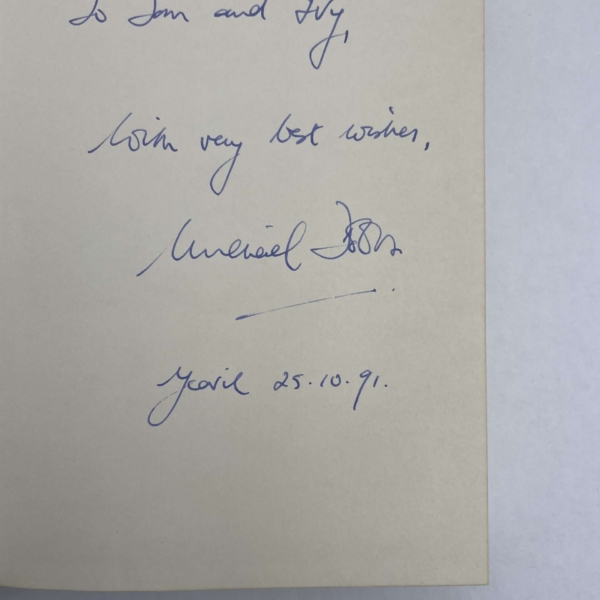 To Tom and Ivy,
With very best wishes,
Michael Dobbs
Yeovil 25.10.91.